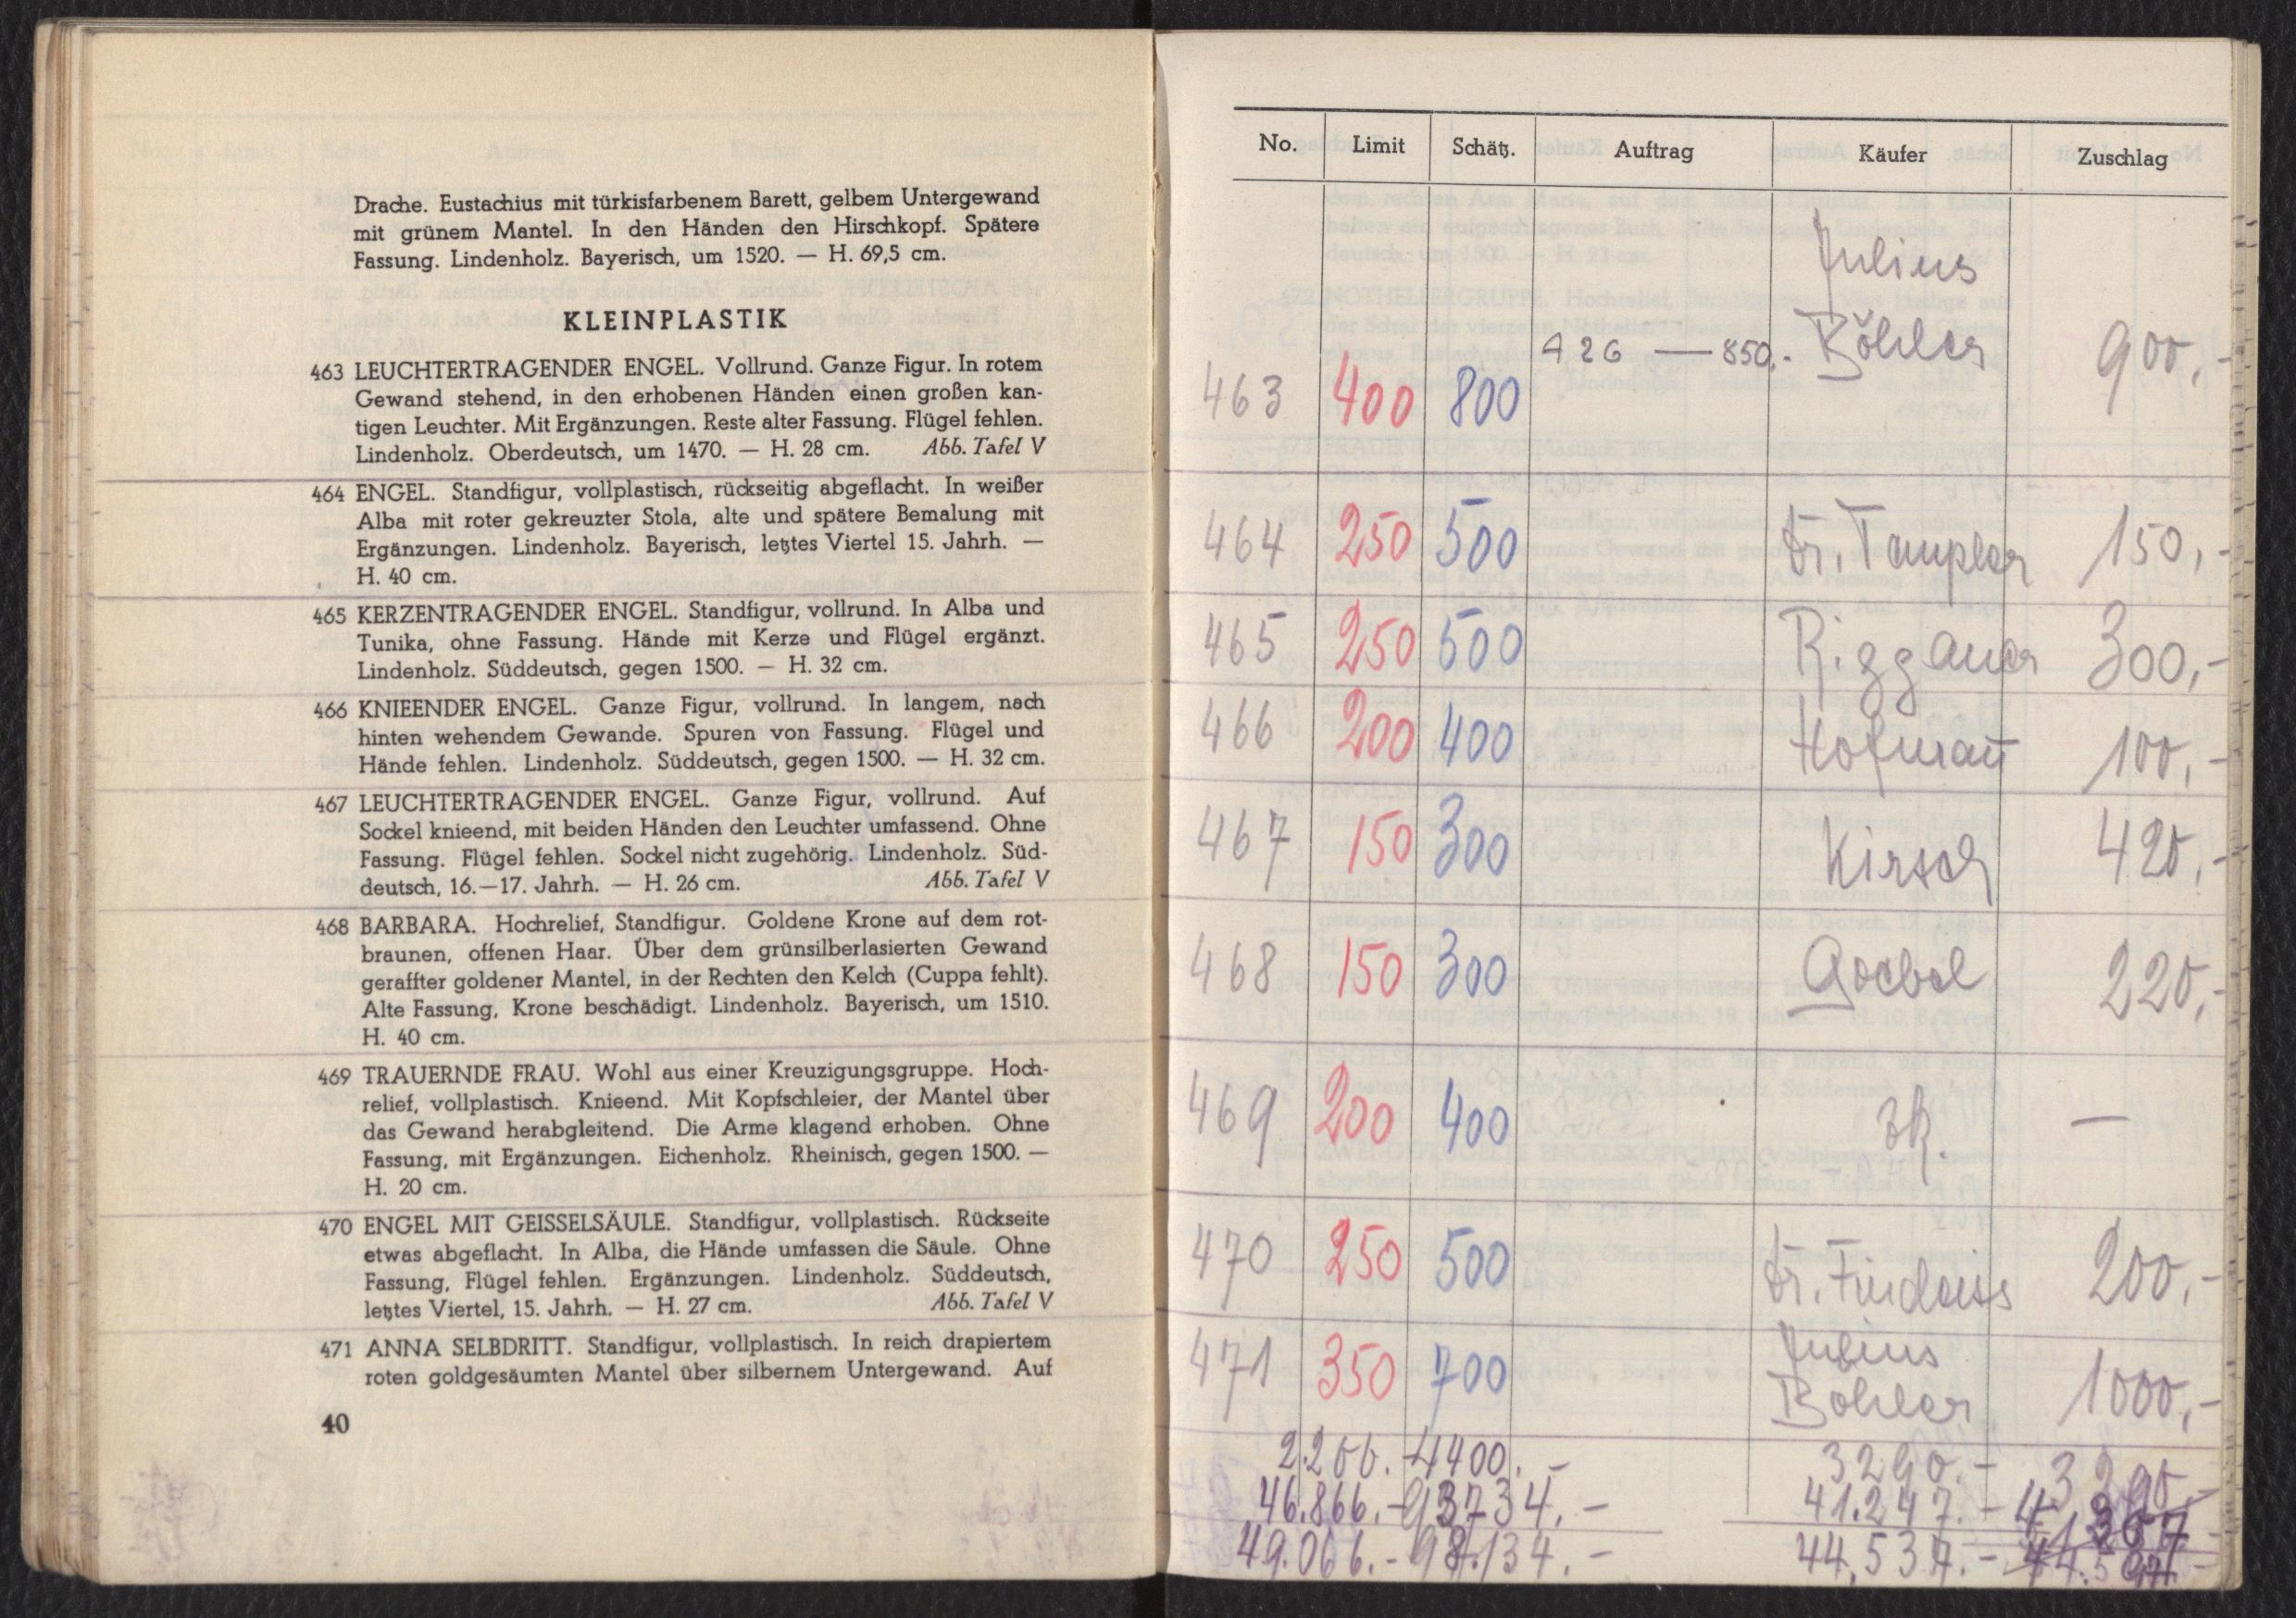 Drache. Eustachius mit türkisfarbenem Barett, gelbem Untergewand
mit grünem Mantel. In den Händen den Hirschkopf. Spätere
Fassung. Lindenholz. Bayerisch, um 1520. — H. 69,5 cm.
KLEINPLASTIK
463 LEUCHTERTRAGENDER ENGEL. Vollrund. Ganze Figur. In rotem
Gewand stehend, in den erhobenen Händen einen großen kan-
tigen Leuchter. Mit Ergänzungen. Reste alter Fassung. Flügel fehlen.
Lindenholz. Oberdeutsch, um 1470. — H. 28 cm. Abb. Tafel V
464 ENGEL. Standfigur, vollplastisch, rückseitig abgeflacht. In weißer
Alba mit roter gekreuzter Stola, alte und spätere Bemalung mit
Ergänzungen. Lindenholz. Bayerisch, letztes Viertel 15. Jahrh. —
H. 40 cm.
465 KERZENTRAGENDER ENGEL. Standfigur, vollrund. In Alba und
Tunika, ohne Fassung. Hände mit Kerze und Flügel ergänzt.
Lindenholz. Süddeutsch, gegen 1500. — H. 32 cm.
466 KNIEENDER ENGEL. Ganze Figur, vollrund. In langem, nach
hinten wehendem Gewande. Spuren von Fassung. Flügel und
Hände fehlen. Lindenholz. Süddeutsch, gegen 1500. — H. 32 cm.
467 LEUCHTERTRAGENDER ENGEL. Ganze Figur, vollrund. Auf
Sockel knieend, mit beiden Händen den Leuchter umfassend. Ohne
Fassung. Flügel fehlen. Sockel nicht zugehörig. Lindenholz. Süd-
deutsch, 16.—17. Jahrh. — H. 26 cm. Abb. Tafel V
468 BARBARA. Hochrelief, Standfigur. Goldene Krone auf dem rot-
braunen, offenen Haar. Über dem grünsilberlasierten Gewand
geraffter goldener Mantel, in der Rechten den Kelch (Cuppa fehlt).
Alte Fassung, Krone beschädigt. Lindenholz. Bayerisch, um 1510.
H. 40 cm.
469 TRAUERNDE FRAU. Wohl aus einer Kreuzigungsgruppe. Hoch-
relief, vollplastisch. Knieend. Mit Kopfschleier, der Mantel über
das Gewand herabgleitend. Die Arme klagend erhoben. Ohne
Fassung, mit Ergänzungen. Eichenholz. Rheinisch, gegen 1500. —
H. 20 cm.
470 ENGEL MIT GEISSELSÄULE. Standfigur, vollplastisch. Rückseite
etwas abgeflacht. In Alba, die Hände umfassen die Säule. Ohne
Fassung, Flügel fehlen. Ergänzungen. Lindenholz. Süddeutsch,
letztes Viertel, 15. Jahrh. — H. 27 cm. Abb. Tafel V
471 ANNA SELBDRITT. Standfigur, vollplastisch. In reich drapiertem
roten goldgesäumten Mantel über silbernem Untergewand. Auf
40
No. Limit Schätz. Auftrag Käufer Zuschlag
Julius
463 400 800 426 — 850.- Böhler 900,-
464 250 500 Dr. Templer 150,-
465 250 500 Riggauer 300,-
466 200 400 Hofman̄ 100,-
467 150 300 Kirsch 420,-
468 150 300 Goebel 220,-
469 200 400 zk. —
470 250 500 Dr. Findeiss 200,-
Julius
471 350 700 Böhler 1000,-
2.200.- 4400.- 3290.- 3290.-
46.866.- 93734.- 41.247.-
49.066.- 98.134.- 44.537.-